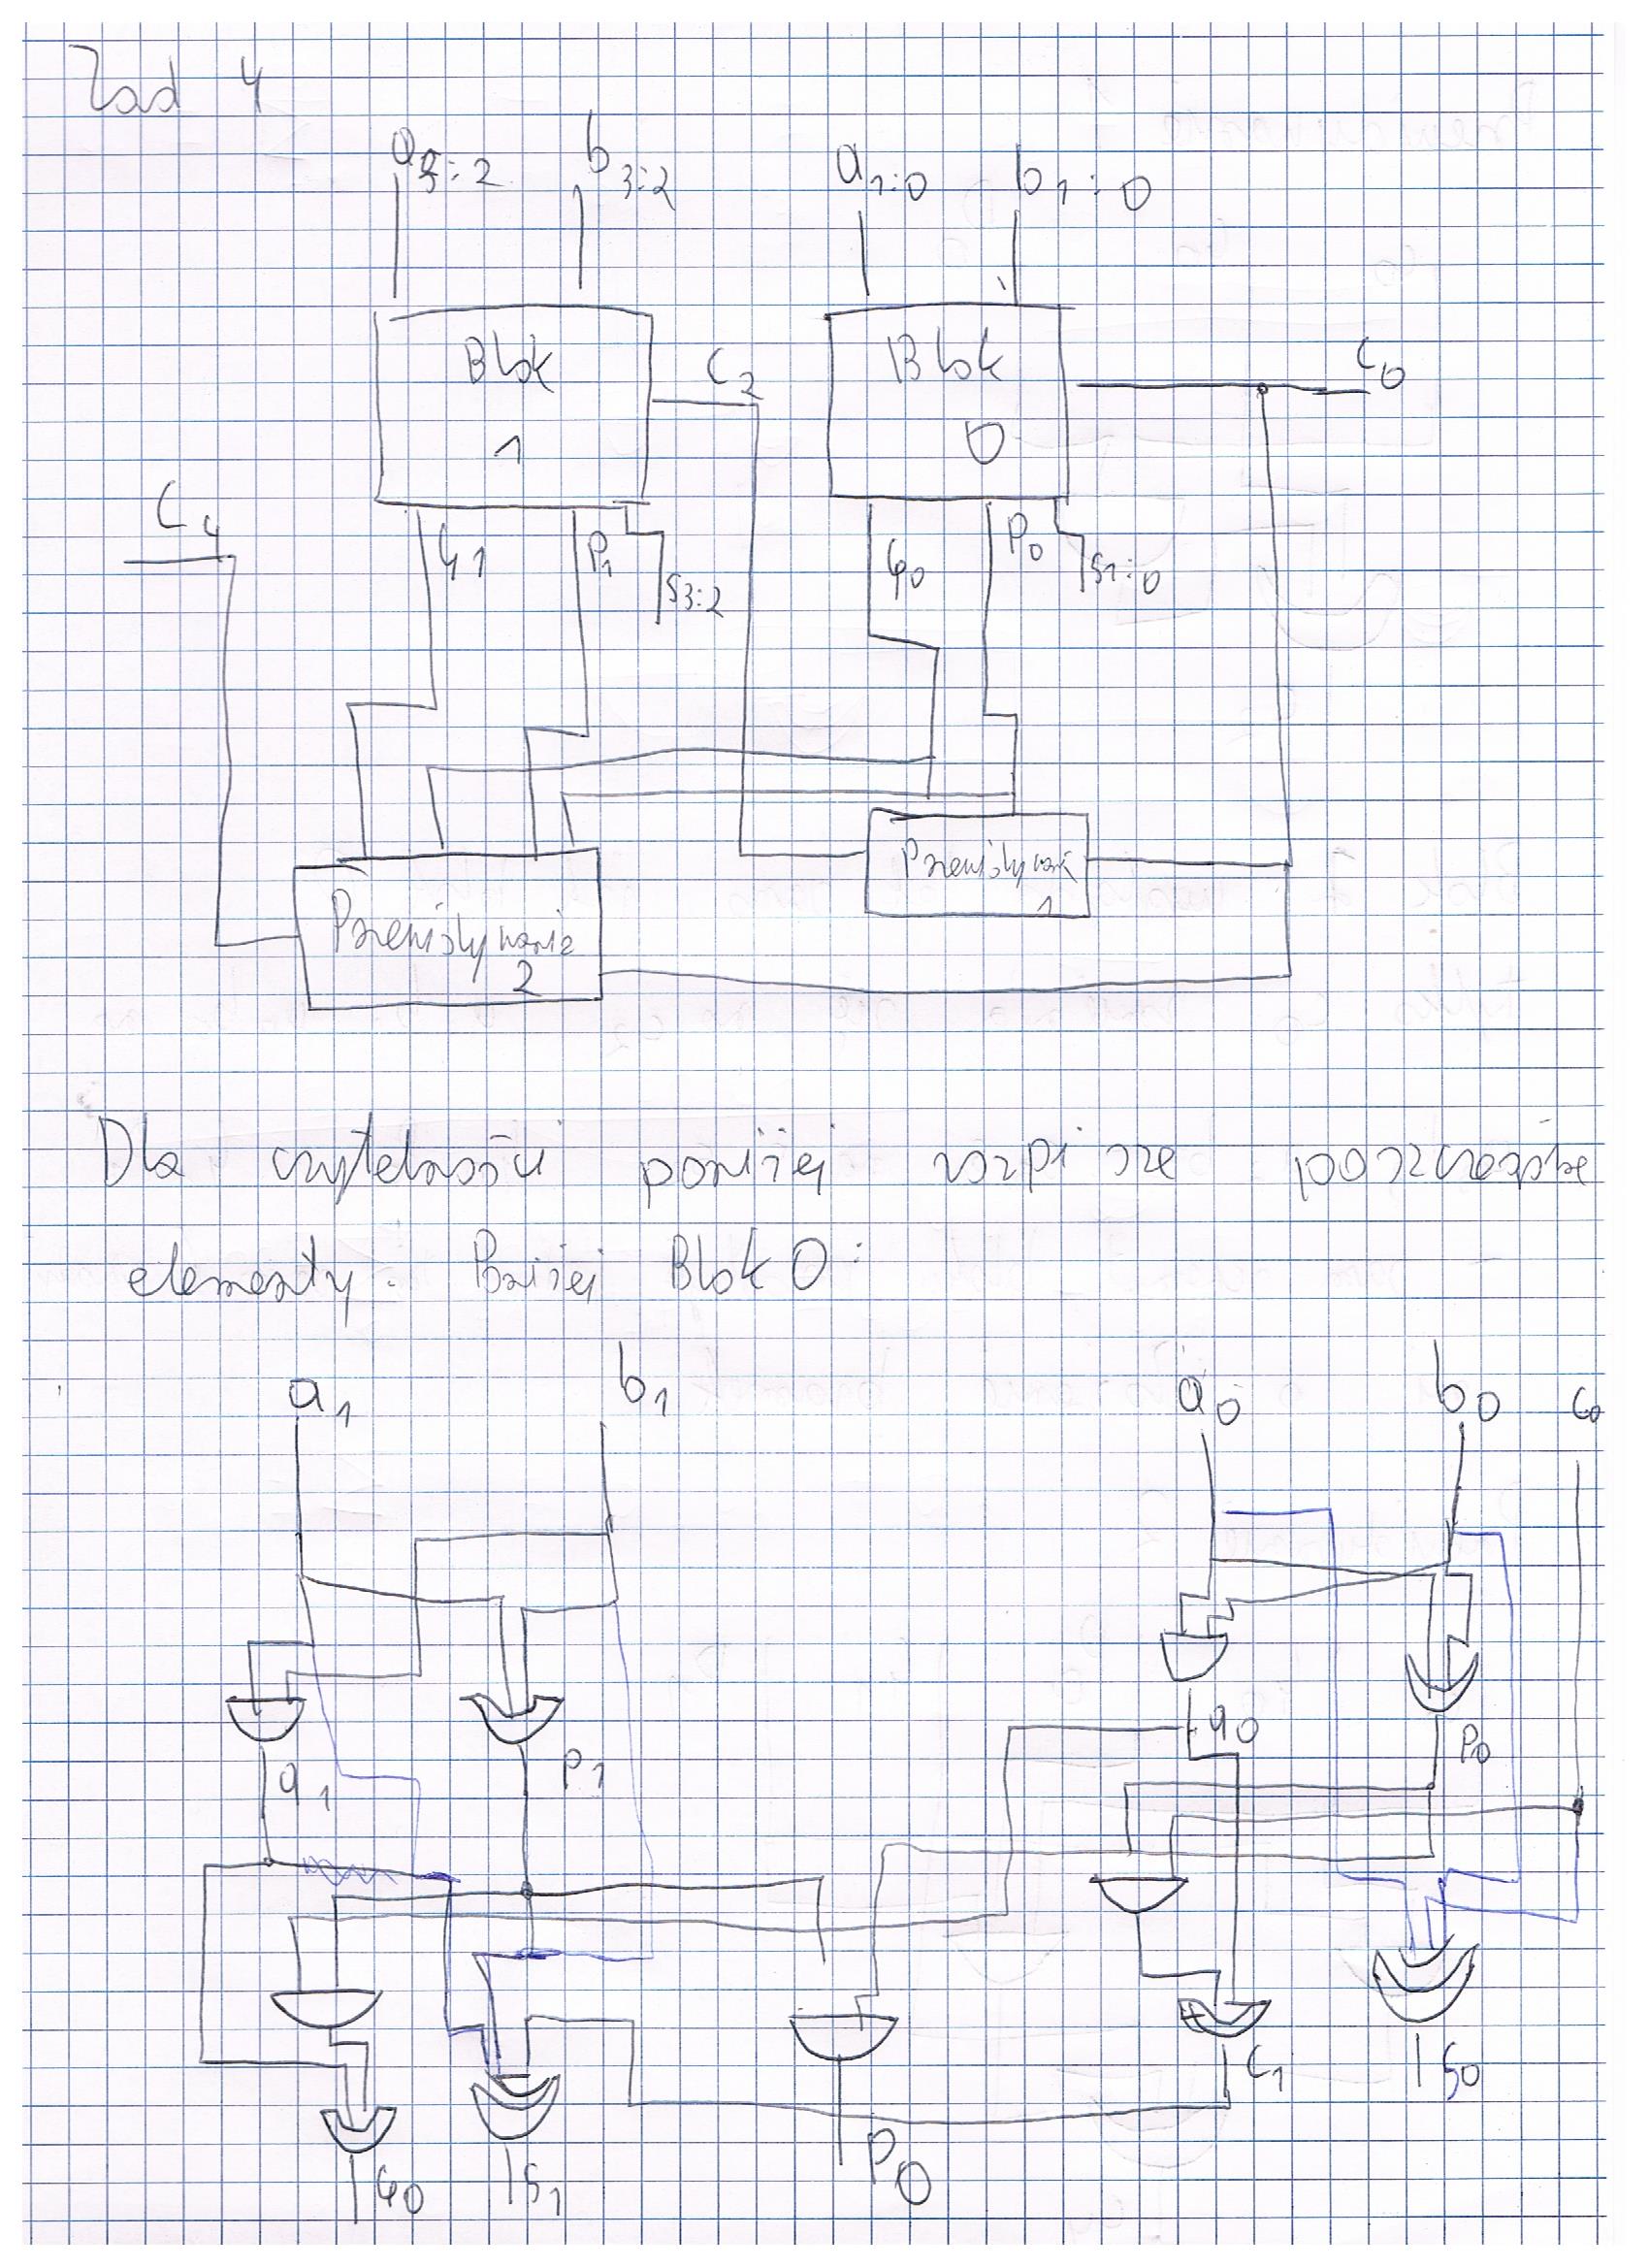 Zad 4
a3:2 b3:2 a1:0 b1:0
Blok 1 C2 Blok 0 C0
C4
G1 P1 S3:2 G0 P0 S1:0
Przenisływanie 1
Przenisływanie 2
Dla czytelności poniżej rozpiszę poszczególne
elementy. Poniżej Blok 0:
a1 b1 a0 b0 c0
g0 p0
g1 p1
C1 S0
G0 S1 P0